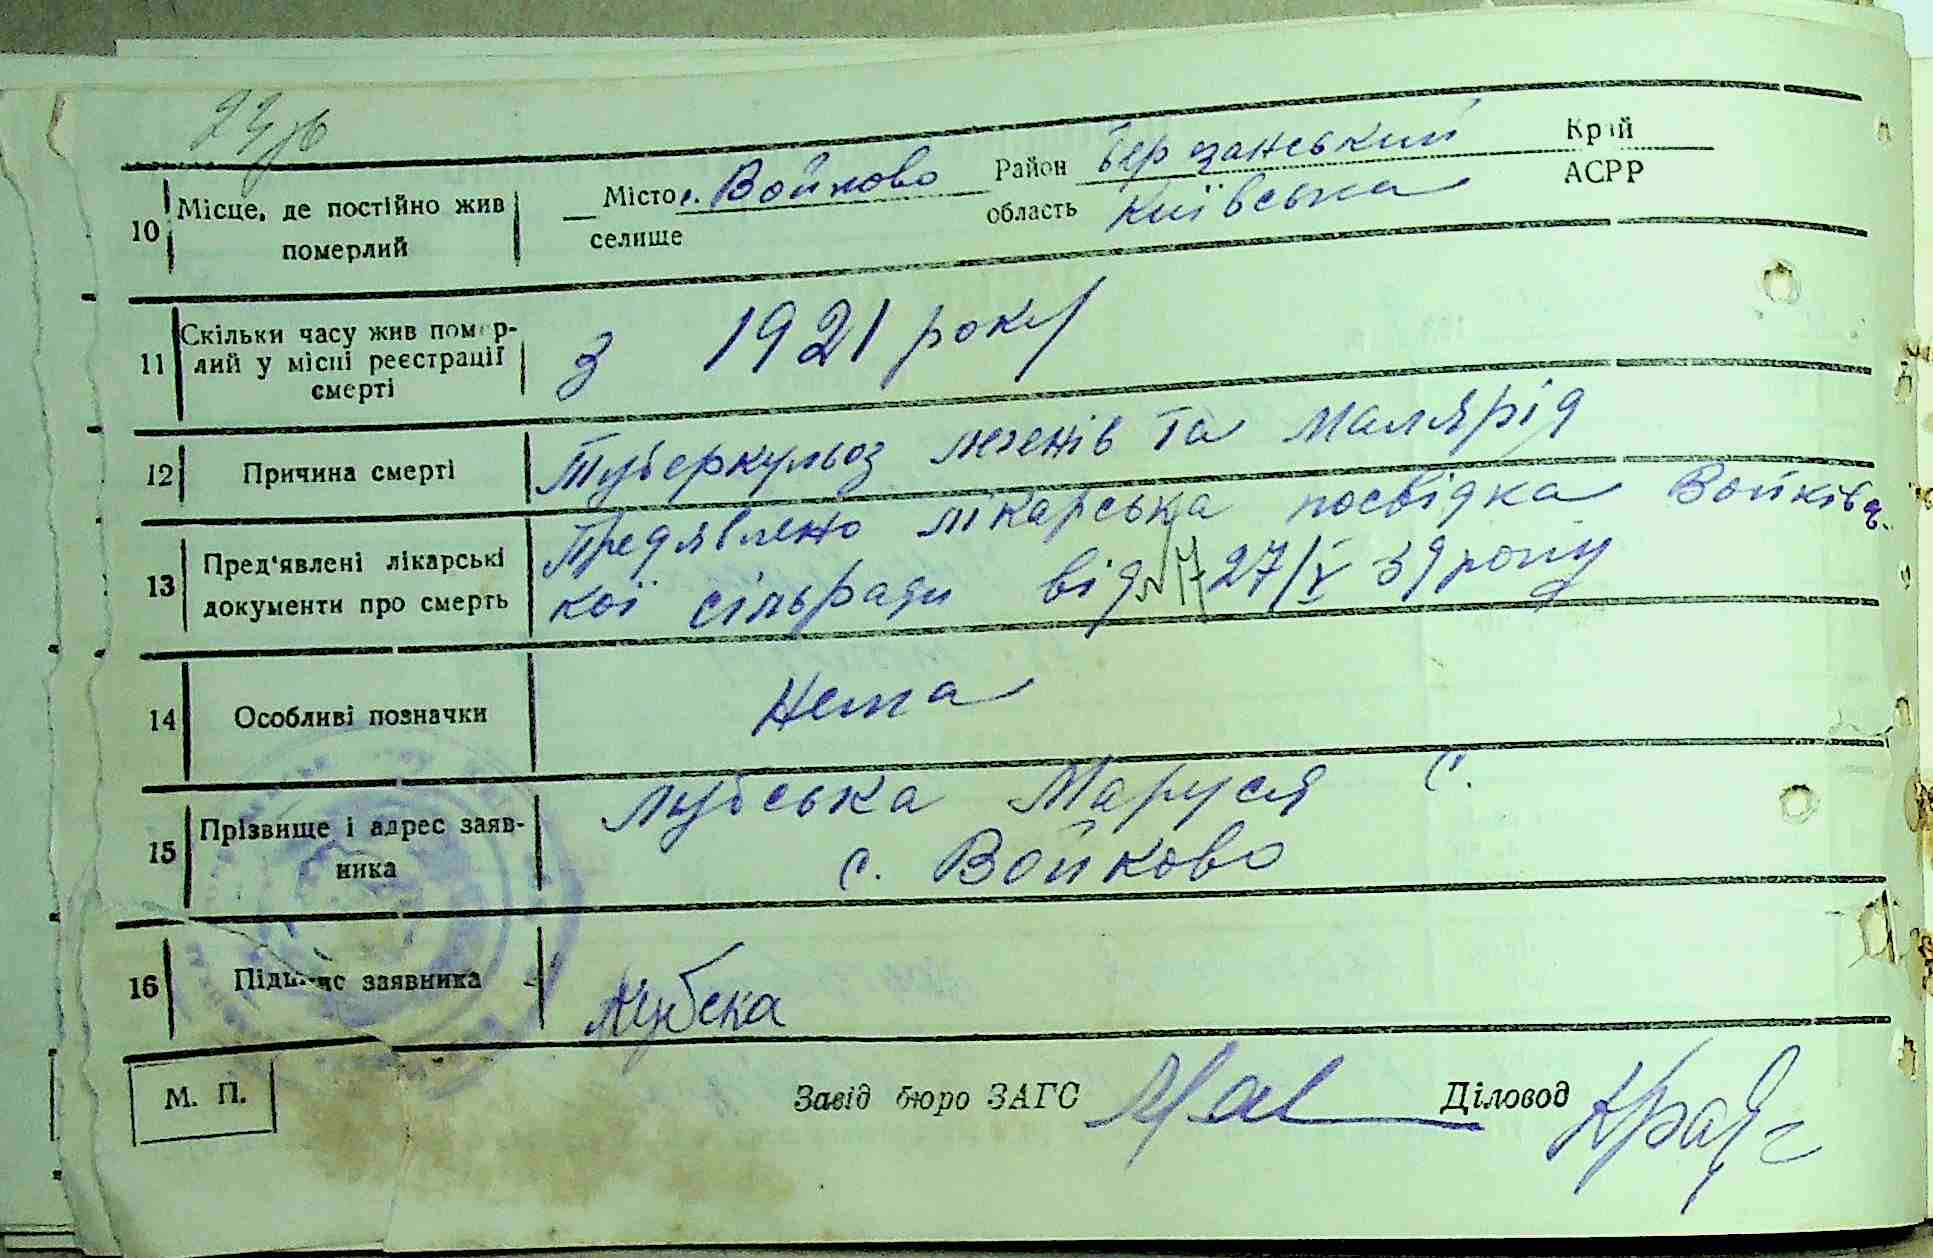 10 Місце, де постійно жив померлий
Місто с. Войково Район Березанський Край
селище область Київська АСРР
11 Скільки часу жив помер-
лий у місці реєстрації
смерті
З 1921 року
12 Причина смерті Туберкульоз легенів та Малярія
13 Пред'явлені лікарські
документи про смерть
Предявлено лікарська посвідка Войківсь
кої сільради від №17 27/V 39 року
14 Особливі позначки Нема
15 Прізвище і адрес заяв-
ника
Лубська Маруся С.
с. Войково
16 Підпис заявника Лубска
М. П. Завід бюро ЗАГС Діловод